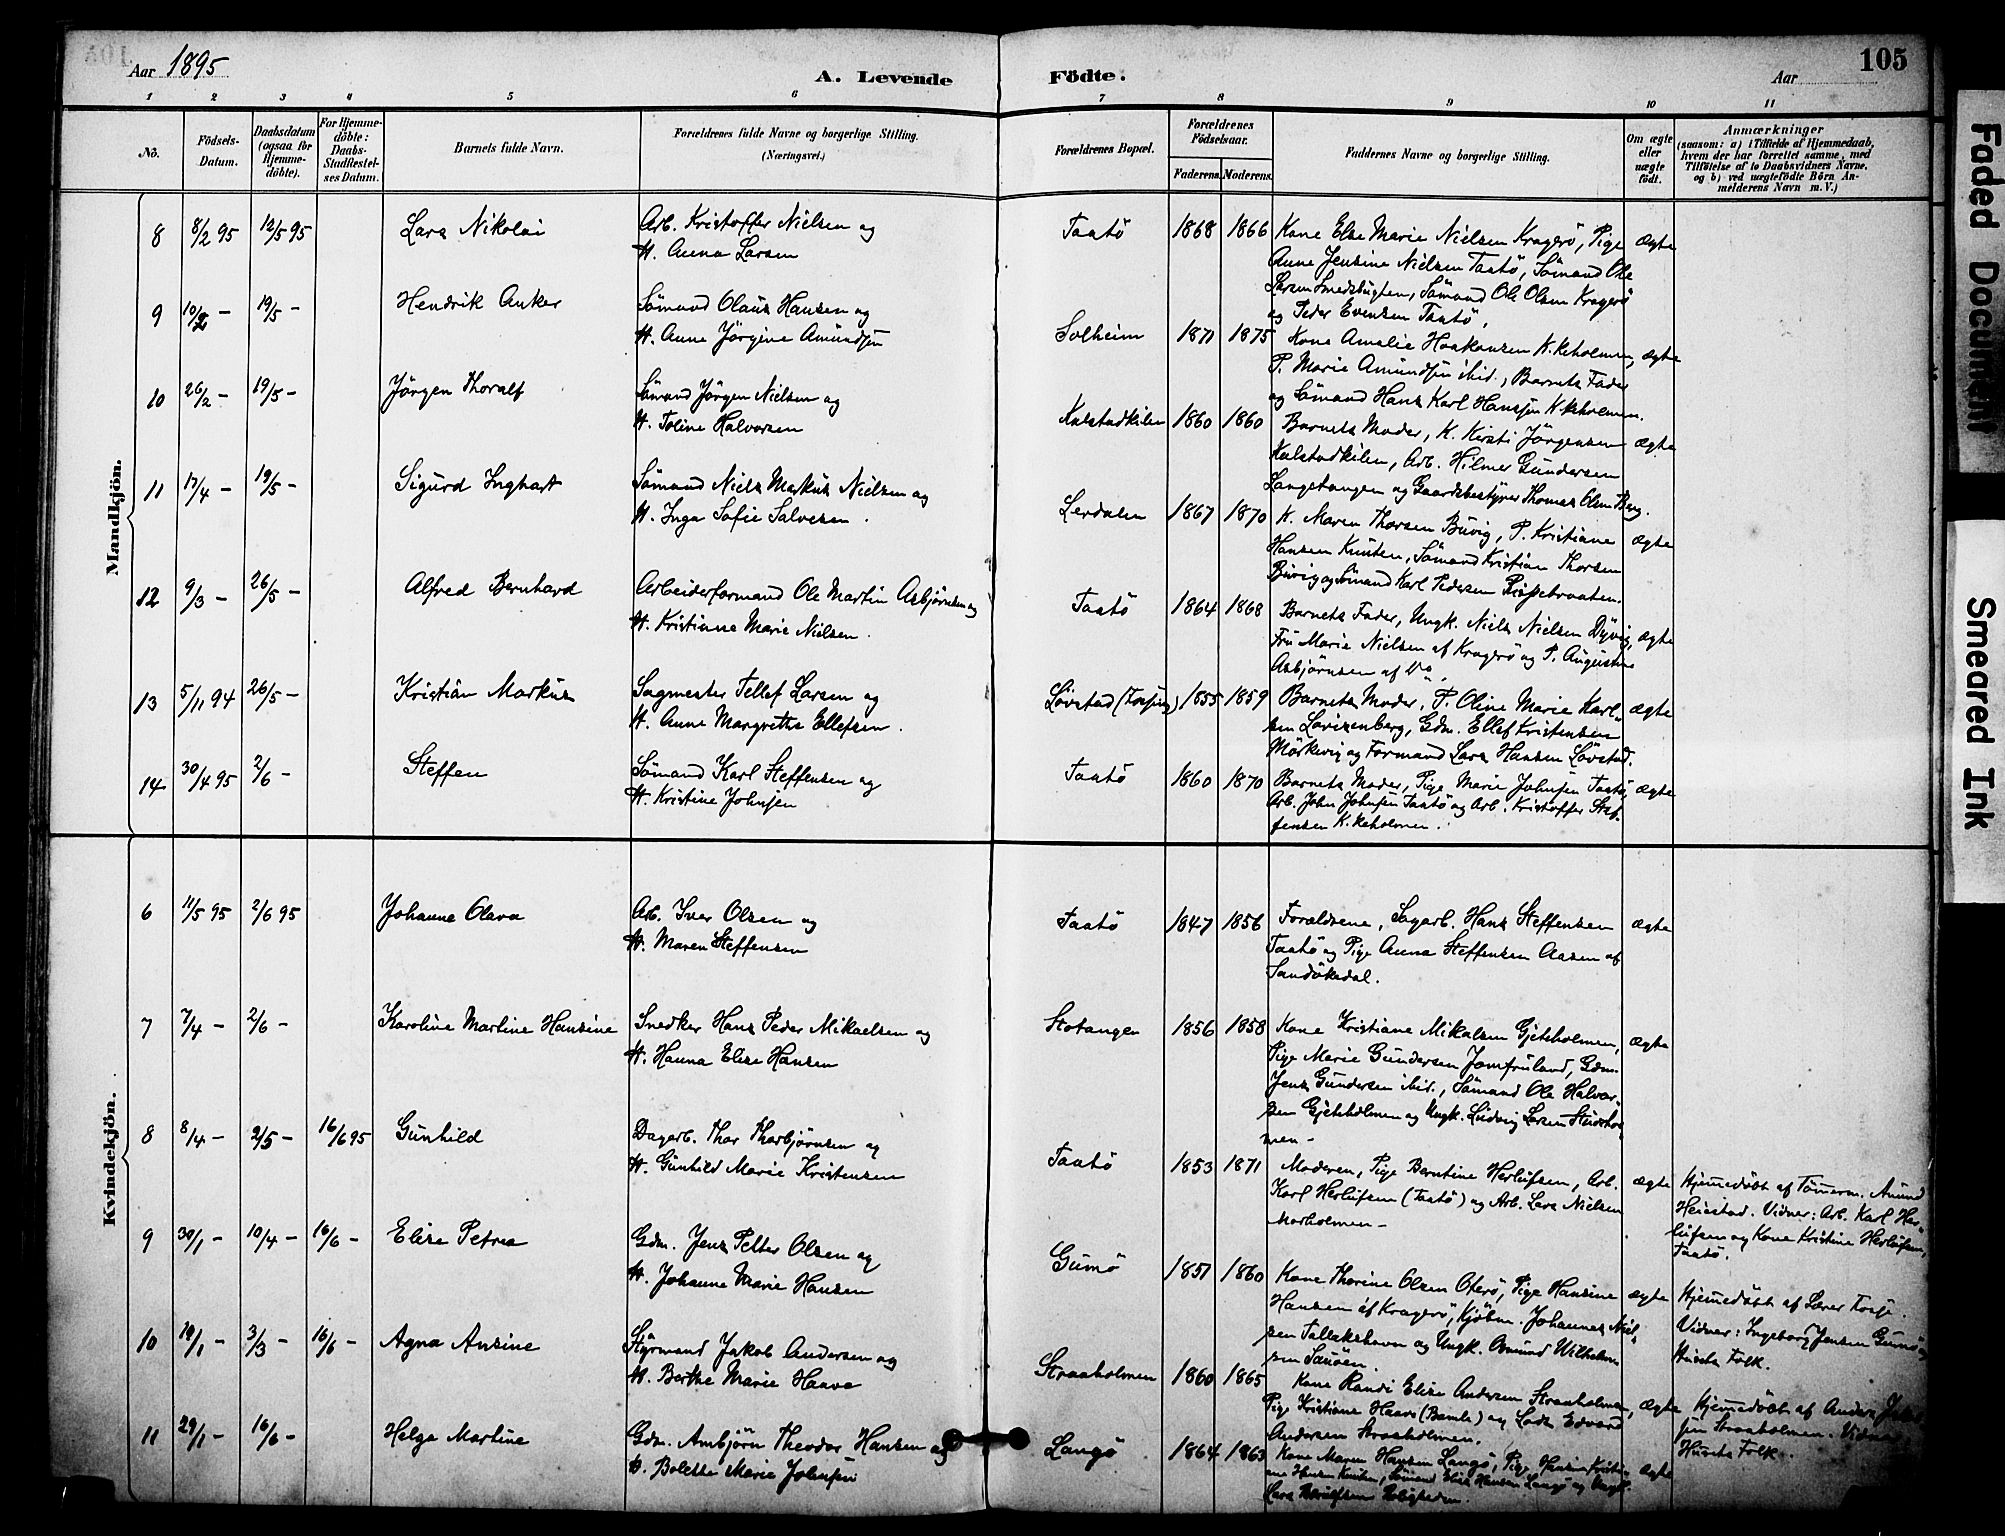 105
Aar 1895
A. Levende Födte.
Aar
1 2 3 4 5 6 7 8 9 10 11
No.
Födsels-Datum.
Daabsdatum (ogsaa for Hjemme-döbte).
For Hjemme-döbte: Daabs-Stadfæstel-ses Datum.
Barnets fulde Navn.
Forældrenes fulde Navne og borgerlige Stilling.
(Næringsvei.)
Forældrenes Bopæl.
Forældrenes Födselsaar.
Faderens. Moderens.
Faddernes Navne og borgerlige Stilling.
Om ægte eller uægte födt.
Anmærkninger
(saasom: a) i Tilfælde af Hjemmedaab,
hvem der har forrettet samme, med
Tilföielse af to Daabsvidners Navne,
og b) ved uægtefödte Börn An-
melderens Navn m. V.)
Mandkjön.
8 8/2 95 12/5 95 Lars Nikolai
Arb. Kristoffer Nielsen og
H. Anna Larsen
Taatö 1868 1866
Kone Else Marie Nielsen Kragerö, Pige
Anne Jensine Nielsen Taatö, Sömand Ole
Larsen Smedsbugten, Sömand Ole Olsen Kragerö
og Peder Evensen Taatö.
ægte
9 10/2 - 19/5 - Hendrik Anker
Sömand Olaus Hansen og
H. Anne Jörgine Amundsen
Solheim 1871 1875
Kone Amalie Haakonsen K.keholmen,
P. Marie Amundsen ibid., Barnets Fader
og Sömand Hans Karl Hansen K.keholmen.
ægte
10 26/2 - 19/5 - Jörgen Thoralf
Sömand Jörgen Nielsen og
H. Toline Halvorsen
Kalstadkilen 1860 1860
Barnets Moder, K. Kirsti Jörgensen
Kalstadkilen, Arb. Hilmer Gundersen
Langetangen og Gaardsbestyrer Thomas Olsen Berg.
ægte
11 17/4 - 19/5 - Sigurd Inghart
Sömand Niels Markus Nielsen og
H. Inga Sofie Salvesen.
Lerdalen 1867 1870
K. Maren Thorsen Buvig, P. Kristiane
Hansen Knuten, Sömand Kristian Thorsen
Buvig og Sömand Karl Pedersen
ægte
12 9/3 - 26/5 - Alfred Bernhard
Arbeiderformand Ole Martin Asbjörnsen og
H. Kristiane Marie Nielsen.
Taatö 1864 1868
Barnets Fader, Ungk. Niels Nielsen Dyvig,
Fru Marie Nielsen af Kragerö og P. Augusta
Asbjörnsen af Do.
ægte
13 5/11 94 26/5 - Kristian Markus
Sagmester Tellef Larsen og
H. Anne Margrethe Ellefsen.
Lövstad 1855 1859
Barnets Moder, P. Oline Marie Karl-
sen Lovisenberg, Gdm. Ellef Kristensen
Mörkevig og Formand Lars Hansen Lövstad.
ægte
14 30/4 95 2/6 - Steffen
Sömand Karl Steffensen og
H. Kristine Johnsen
Taatö 1860 1870
Barnets Moder, Pige Marie Johnsen Taatö,
Arb. John Johnsen Taatö og Arb. Kristoffer Stef-
fensen K.keholmen.
ægte
Kvindekjön.
6 11/5 95 2/6 95 Johanne Olava
Arb. Iver Olsen og
H. Maren Steffensen
Taatö 1847 1856
Forældrene, Sagarb. Hans Steffensen
Taatö og Pige Anna Steffensen Aasen af
Sandökedal.
ægte
7 7/4 - 2/6 - Karoline Martine Hansine
Snedker Hans Peder Mikaelsen og
H. Hanna Elise Hansen
Stotangen 1856 1858
Kone Kristiane Mikalsen Gjeteholmen,
Pige Marie Gundersen Jomfruland, Gdm.
Jens Gundersen ibid., Sömand Ole Halvor-
sen Gjeteholmen og Ungk. Ludvig Larsen
men -
ægte
8 8/4 - 2/5 - 16/6 95 Gunhild
Dagarb. Thor Thorbjörnsen og
H. Gunhild Marie Kristensen
Taatö 1853 1871
Moderen, Pige Berntine Herlufsen, Arb.
Karl Herlufsen (Taatö) og Arb. Lars Nielsen
Morholmen -
ægte
Hjemmedöbt af Tömmerm. Amund
Heiestad. Vidner: Arb. Karl Her-
lufsen og Kone Kristine Herlufsen,
Taatö.
9 30/1 - 10/4 - 16/6 - Elise Petrea
Gdm. Jens Petter Olsen og
H. Johanne Marie Hansen
Gumö 1851 1860
Kone Thorine Olsen Oterö, Pige Hansine
Hansen af Kragerö, Kjöbm. Johannes Niel-
sen Tallakshavn og Ungk. Osmund Wilhelm-
sen
ægte
Hjemmedöbt af Lærer
Vidner: Ingeborg Jensen Gumö og
Husets Folk.
10 19/1 - 3/3 - 16/6 - Agna Ansine
Styrmand Jakob Andersen og
H. Berthe Marie Haave
Straaholmen 1860 1865
Kone Randi Elise Andersen Straaholmen,
Pige Kristiane Haave (Bamle) og Lods Edvard
Andersen Straaholmen.
ægte
Hjemmedöbt af Anders
sen Straaholmen. Vidner
Husets Folk.
11 29/1 - 16/6 - Helga Martine
Gdm. Ambjörn Theodor Hansen og
H. Bolette Marie Johnsen
Langö 1864 1863
Kone Maren Hansen Langö, Pige Hansine Kristi-
ne Hansen Knuten, Sömand Elias Hansen Langö og Ungk.
Lars
ægte
Faded Document
Smeared Ink